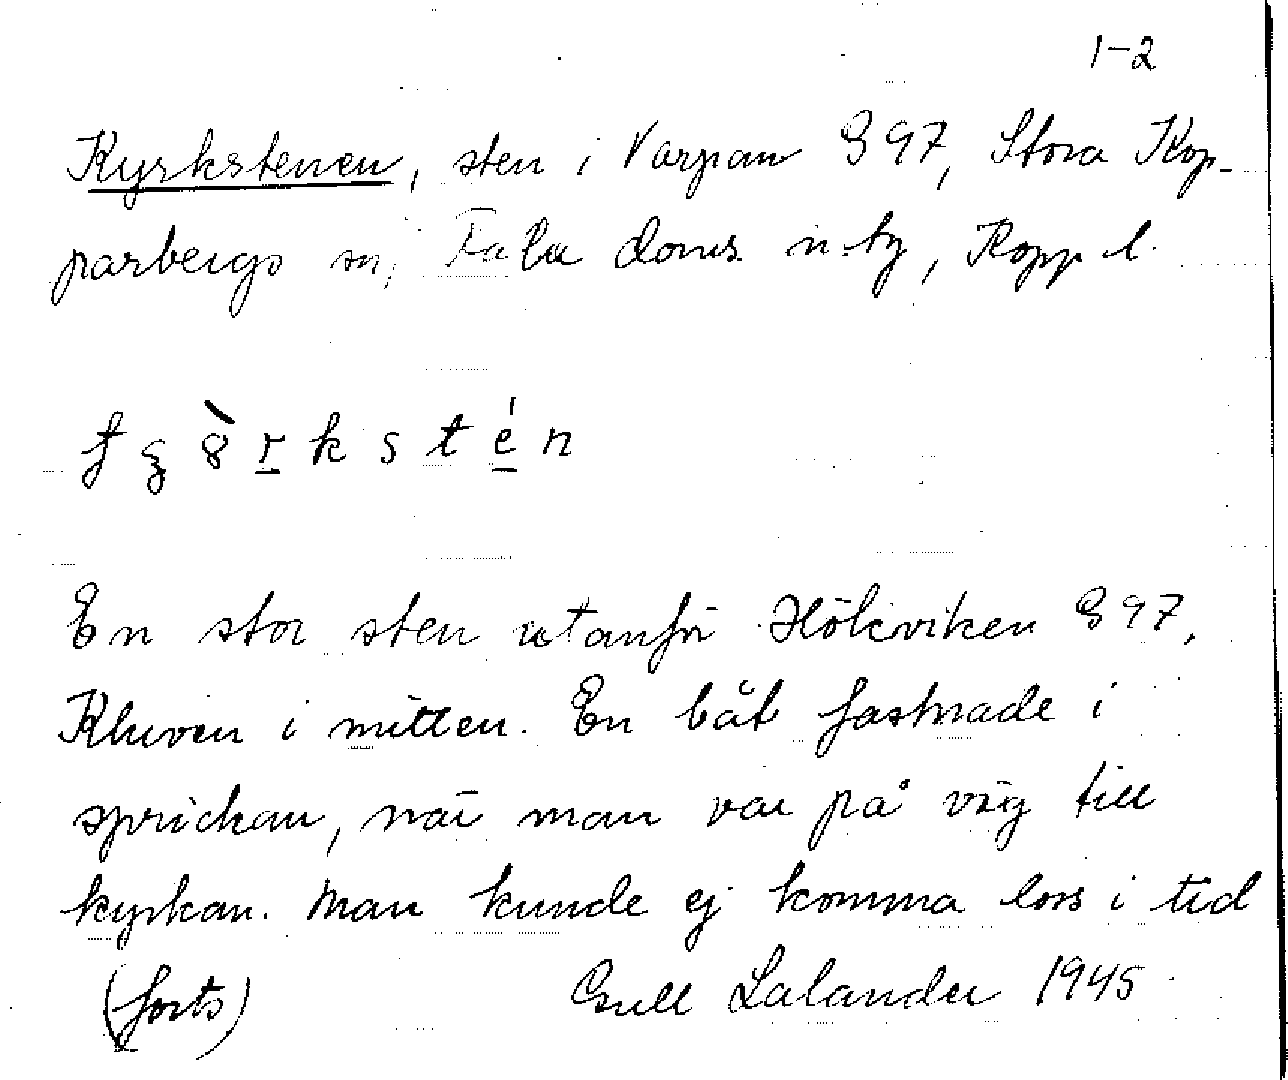 1-2
Kyrkstenen, sten i Varpan G 97, Stora Kop-
parbergs sn, Falu doms. n. tg, Kopp l.
En stor sten utanför Hökviken G 97,
Kluven i mitten. En båt fastnade i
sprickan, när man var på väg till
kyrkan. Man kunde ej komma loss i tid
(forts) Gull Lalander 1945